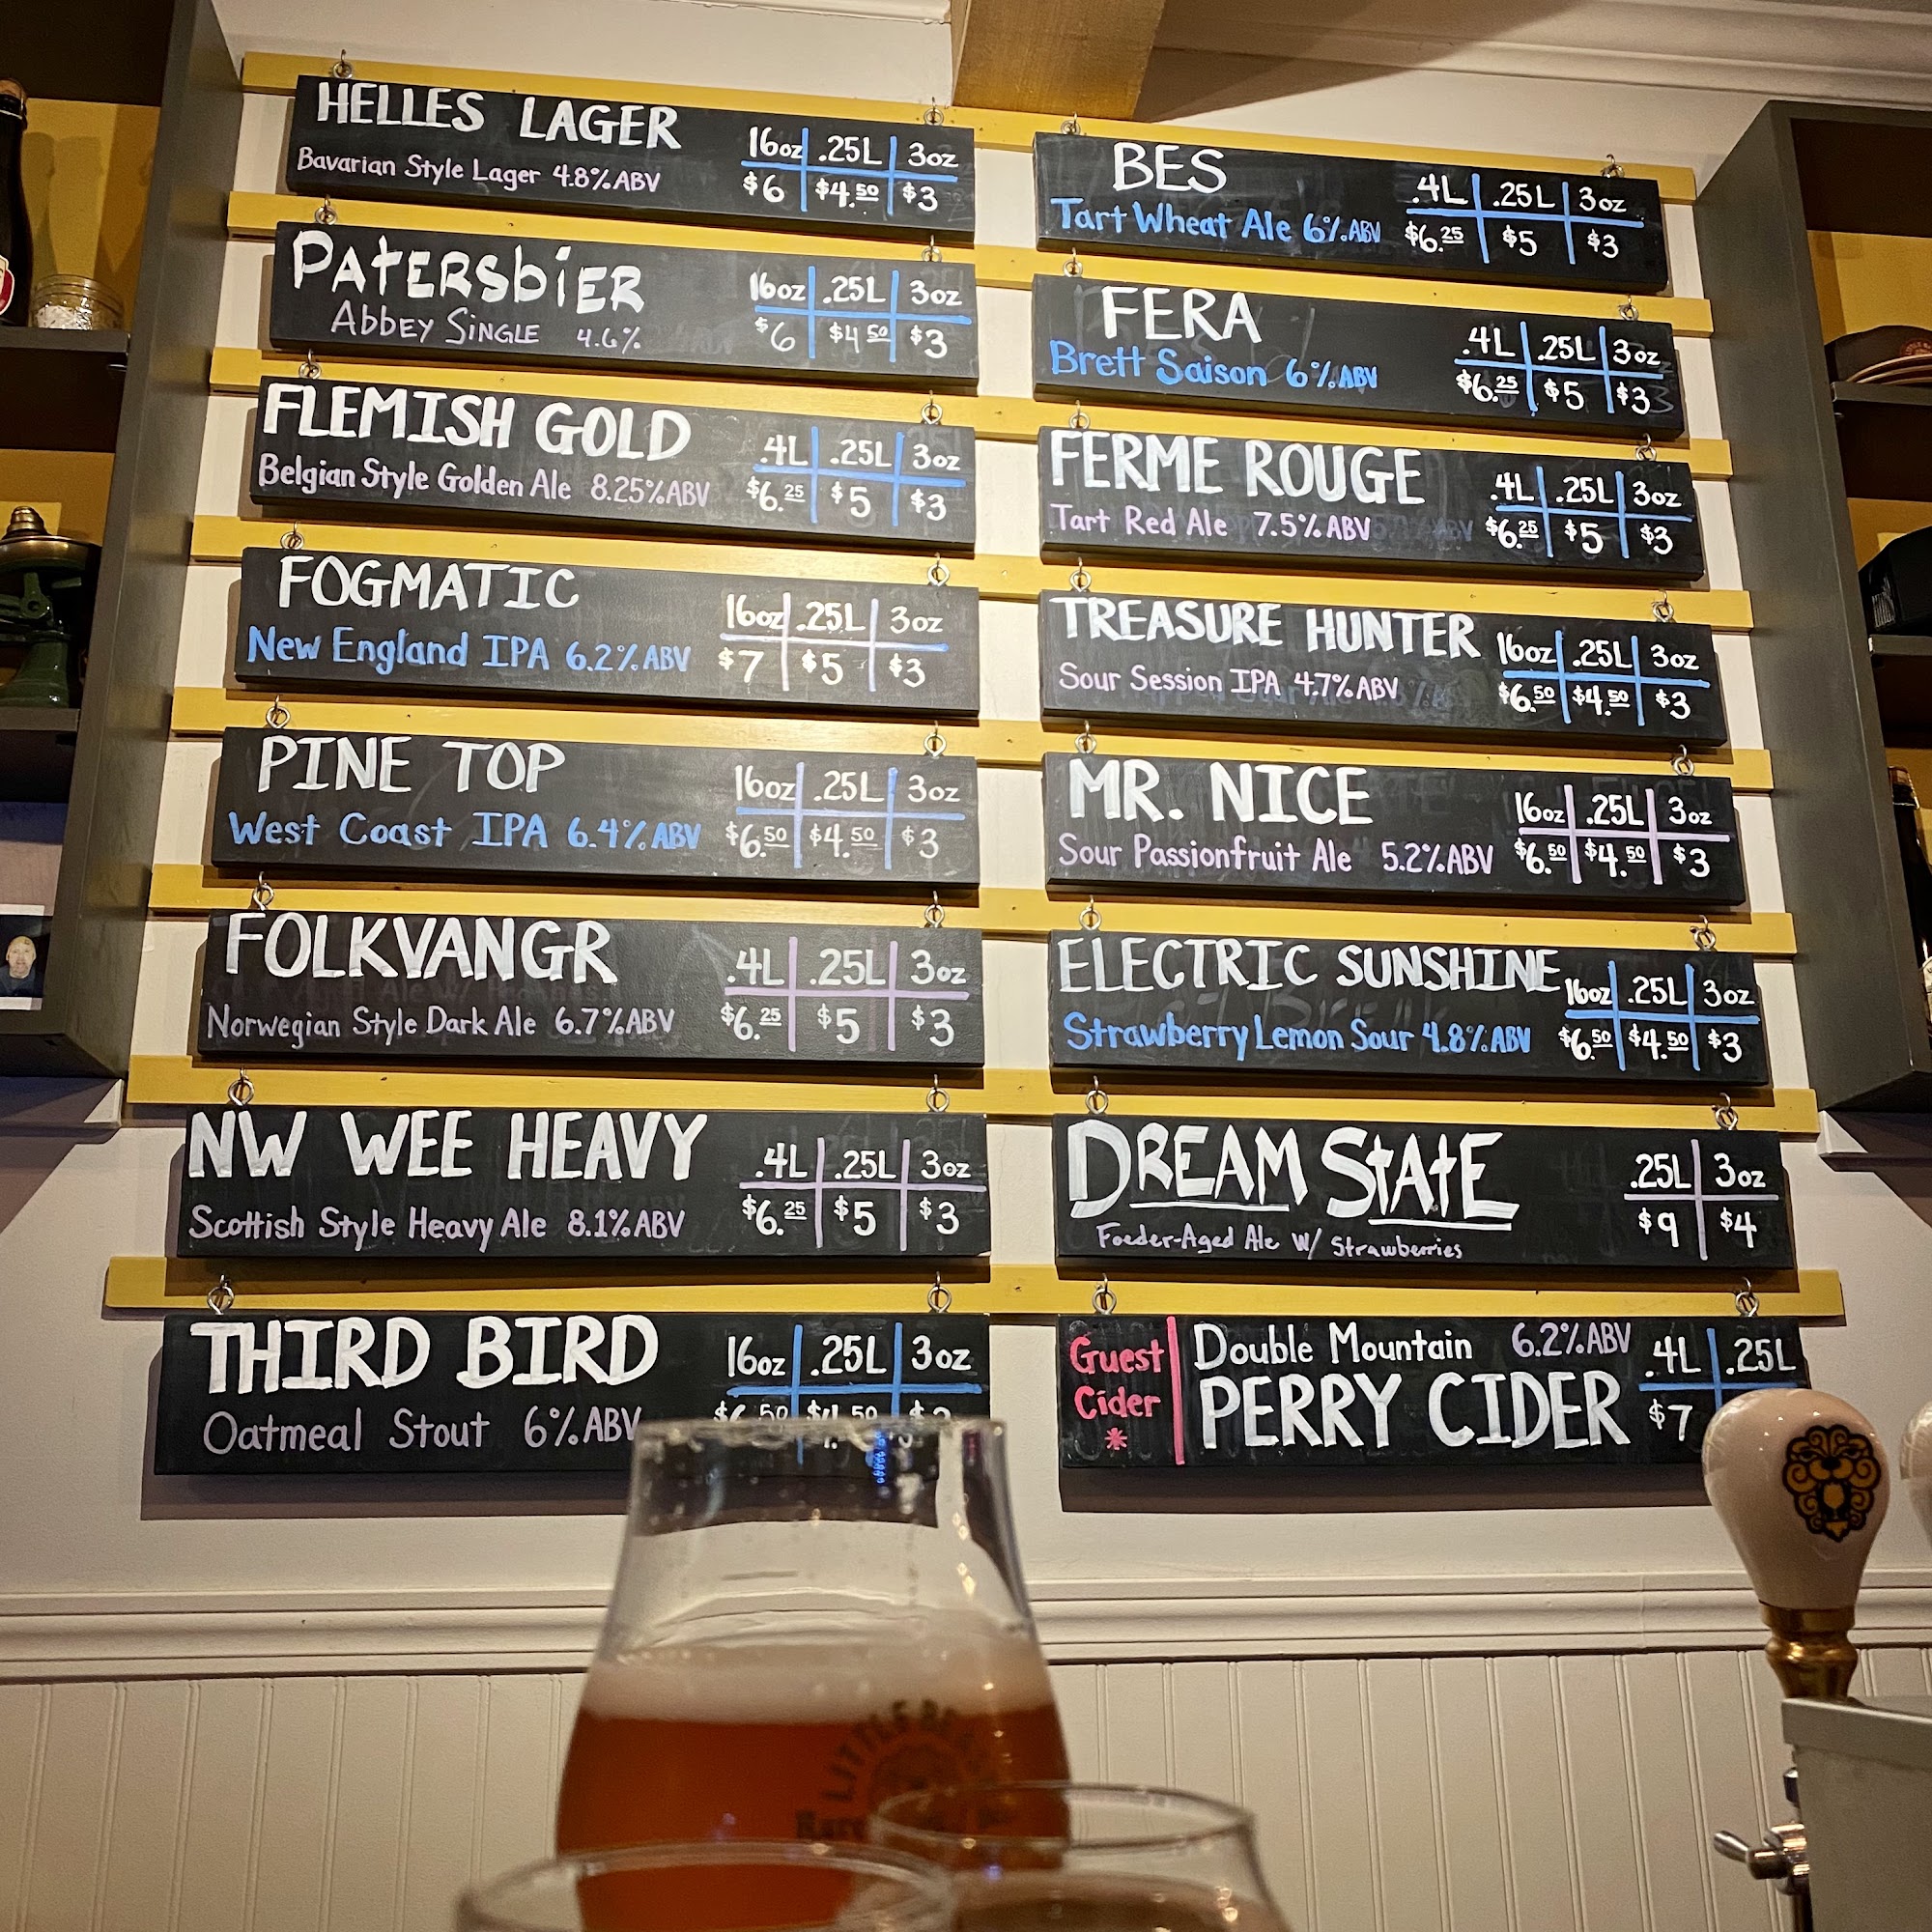 HELLES LAGER
Bavarian Style Lager 4.8% ABV
16oz .25L 3oz
$6 $4.50 $3
PATERSBIER
ABBEY SINGLE 4.6%
16oz .25L 3oz
$6 $4 50 $3
FLEMISH GOLD
Belgian Style Golden Ale 8.25% ABV
.4L .25L 3oz
$6.25 $5 $3
FOGMATIC
New England IPA 6.2% ABV
16oz .25L 3oz
$7 $5 $3
PINE TOP
West Coast IPA 6.4% ABV
16oz .25L 3oz
$6.50 $4.50 $3
FOLKVANGR
Norwegian Style Dark Ale 6.7% ABV
.4L .25L 3oz
$6.25 $5 $3
NW WEE HEAVY
Scottish Style Heavy Ale 8.1% ABV
.4L .25L 3oz
$6.25 $5 $3
THIRD BIRD
Oatmeal Stout 6% ABV
16oz .25L 3oz
BES
Tart Wheat Ale 6% ABV
.4L .25L 3oz
$6.25 $5 $3
FERA
Brett Saison 6% ABV
.4L .25L 3oz
$6.25 $5 $3
FERME ROUGE
Tart Red Ale 7.5% ABV
.4L .25L 3oz
$6.25 $5 $3
TREASURE HUNTER
Sour Session IPA 4.7% ABV
16oz .25L 3oz
$6.50 $4.50 $3
MR. NICE
Sour Passionfruit Ale 5.2% ABV
16oz .25L 3oz
$6.50 $4.50 $3
ELECTRIC SUNSHINE
Strawberry Lemon Sour 4.8% ABV
16oz .25L 3oz
$6.50 $4.50 $3
DREAM STATE
Foeder-Aged Ale W/ Strawberries
.25L 3oz
$9 $4
Guest
Cider
*
Double Mountain 6.2% ABV
PERRY CIDER
.4L .25L
$7
LITTLE